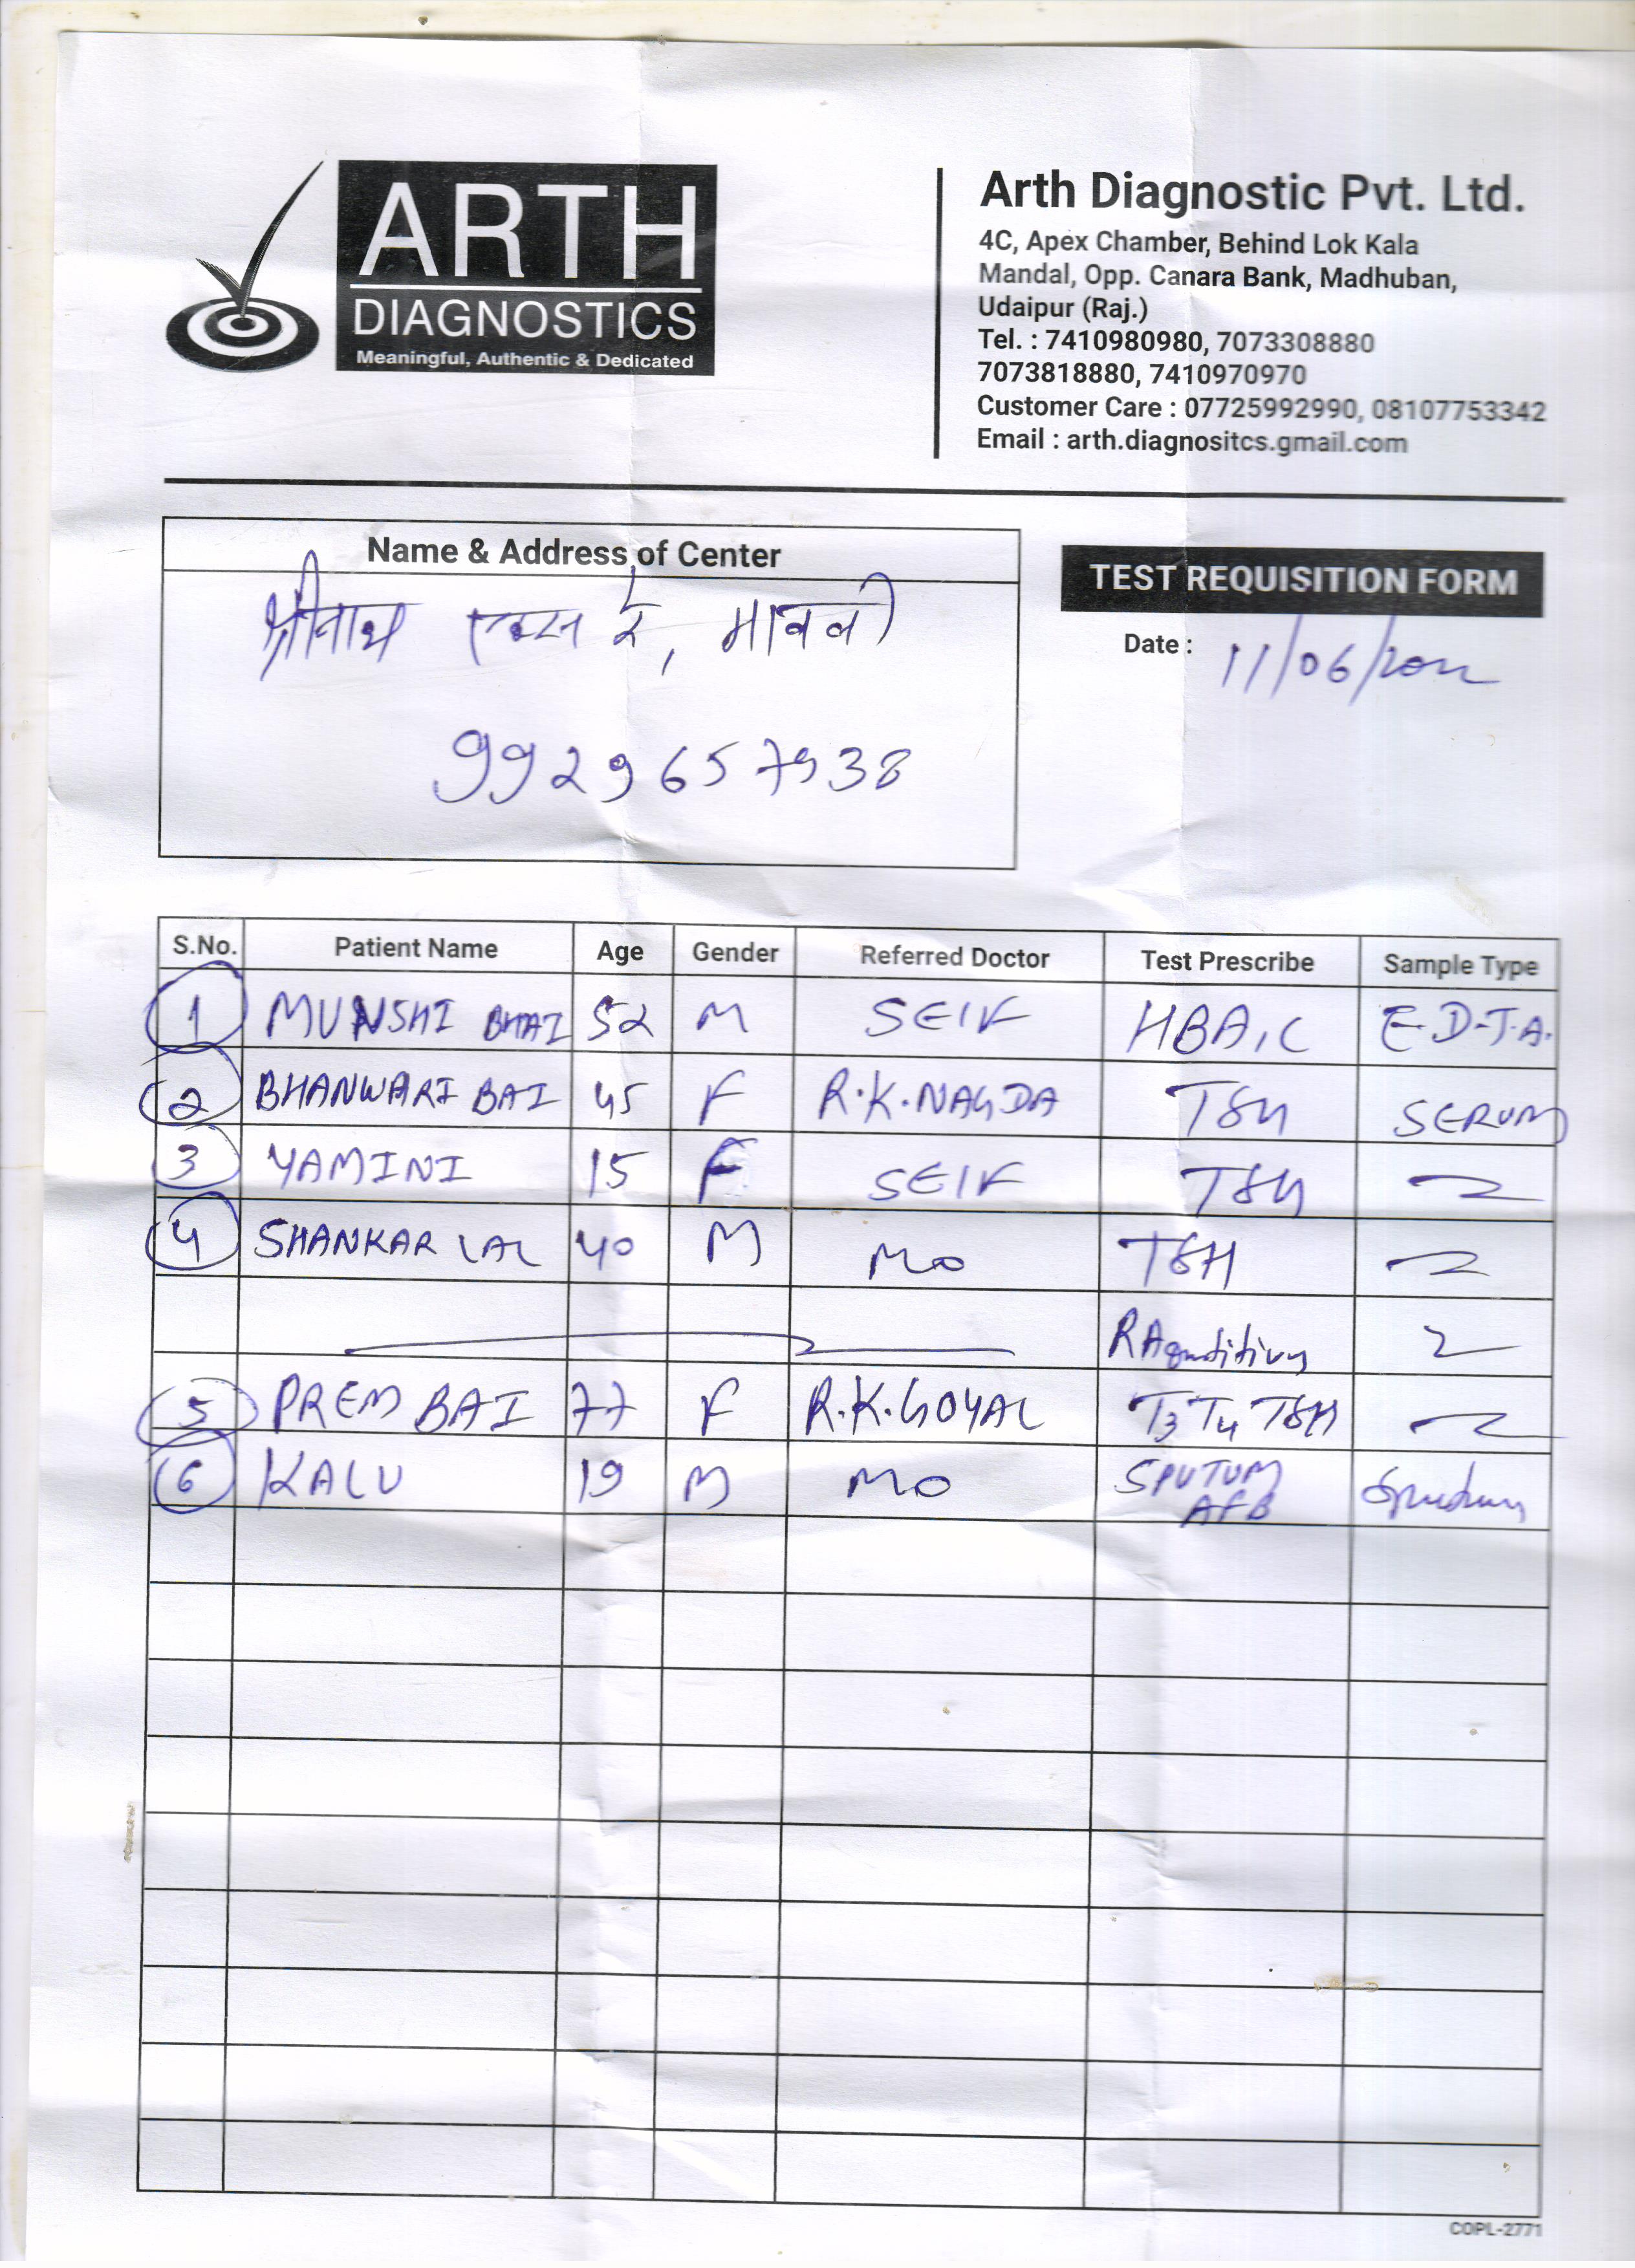 ARTH
DIAGNOSTICS
Meaningful, Authentic & Dedicated
Arth Diagnostic Pvt. Ltd.
4C, Apex Chamber, Behind Lok Kala
Mandal, Opp. Canara Bank, Madhuban,
Udaipur (Raj.)
Tel. : 7410980980, 7073308880
7073818880, 7410970970
Customer Care : 07725992990, 08107753342
Email : arth.diagnositcs.gmail.com
Name & Address of Center
श्रीनाथ एक्स रे, मावली
9929657938
TEST REQUISITION FORM
Date : 11/06/2022
S.No. Patient Name Age Gender Referred Doctor Test Prescribe Sample Type
1 MUNSHI BHAI 52 M SELF HBA1C E.D.T.A.
2 BHANWARI BAI 45 F R.K.NAGDA TSH SERUM
3 YAMINI 15 F SELF TSH
4 SHANKAR LAL 40 M MO TSH
RA
5 PREM BAI 77 F R.K.GOYAL T3 T4 TSH
6 KALU 19 M MO SPUTUM AFB Sputum
COPL-2771